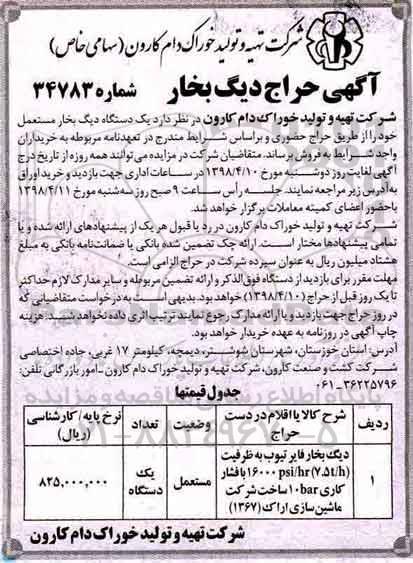 شرکت تهیه و تولید خوراک دام کارون (سهامی خاص)
آگهی حراج دیگ بخار شماره ۳۴۷۸۳
شرکت تهیه و تولید خوراک دام کارون در نظر دارد یک دستگاه دیگ بخار مستعمل
خود را از طریق حراج حضوری و براساس شرایط مندرج در تعهدنامه مربوطه به خریداران
واجد شرایط به فروش برساند. متقاضیان شرکت در مزایده می‌توانند همه روزه از تاریخ درج
آگهی لغایت روز دوشنبه مورخ ۱۳۹۸/۴/۱۰ در ساعات اداری جهت بازدید و خرید اوراق
به آدرس زیر مراجعه نمایند. جلسه رأس ساعت ۹ صبح روز سه‌شنبه مورخ ۱۳۹۸/۴/۱۱
با حضور اعضای کمیته معاملات برگزار خواهد شد.
شرکت تهیه و تولید خوراک دام کارون در رد یا قبول هر یک از پیشنهادهای ارائه شده و یا
تمامی پیشنهادها مختار است. ارائه چک تضمین شده بانکی یا ضمانت‌نامه بانکی به مبلغ
هشتاد میلیون ریال به عنوان سپرده شرکت در حراج الزامی است.
مهلت مقرر برای بازدید از دستگاه فوق‌الذکر و ارائه تضمین مربوطه و سایر مدارک لازم حداکثر
تا یک روز قبل از حراج (۱۳۹۸/۴/۱۰) خواهد بود. بدیهی است به درخواست متقاضیانی که
در روز حراج جهت بازدید و یا ارائه مدارک رجوع نمایند ترتیب اثری داده نخواهد شد. هزینه
چاپ آگهی در روزنامه به عهده خریدار خواهد بود.
آدرس: استان خوزستان، شهرستان شوشتر، دیمچه، کیلومتر ۱۷ غربی، جاده اختصاصی
شرکت کشت و صنعت کارون، شرکت تهیه و تولید خوراک دام کارون - امور بازرگانی تلفن:
۰۶۱-۳۶۲۲۵۷۹۶
جدول قیمتها
ردیف شرح کالا یا اقلام در دست حراج وضعیت تعداد نرخ پایه / کارشناسی (ریال)
۱ دیگ بخار فایر تیوب به ظرفیت (۷.۵t/h) ۱۶۰۰۰ psi/hr با فشار کاری ۱۰bar ساخت شرکت ماشین‌سازی اراک (۱۳۶۷) مستعمل یک دستگاه ۸۲۵,۰۰۰,۰۰۰
شرکت تهیه و تولید خوراک دام کارون